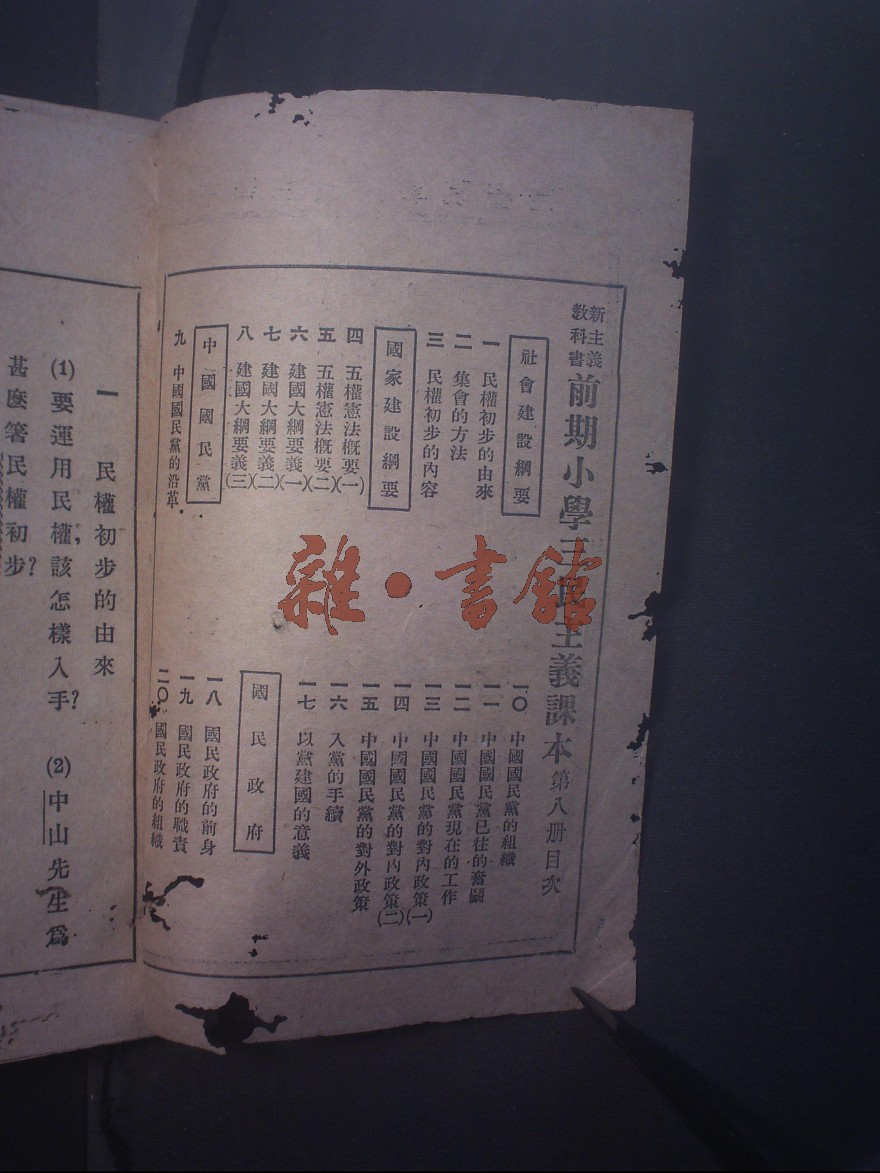 新主義
教科書
前期小學三民主義課本 第八册目次
社會建設綱要
一 民權初步的由來
二 集會的方法
三 民權初步的內容
國家建設綱要
四 五權憲法概要(一)
五 五權憲法概要(二)
六 建國大綱要義(一)
七 建國大綱要義(二)
八 建國大綱要義(三)
中國國民黨
九 中國國民黨的沿革
一〇 中國國民黨的組織
一一 中國國民黨已往的奮鬭
一二 中國國民黨現在的工作
一三 中國國民黨的對內政策(一)
一四 中國國民黨的對內政策(二)
一五 中國國民黨的對外政策
一六 入黨的手續
一七 以黨建國的意義
國民政府
一八 國民政府的前身
一九 國民政府的職責
二〇 國民政府的組織
一 民權初步的由來
(1)要運用民權,該怎樣入手? (2)中山先生爲
甚麽箸民權初步?
雜·書館